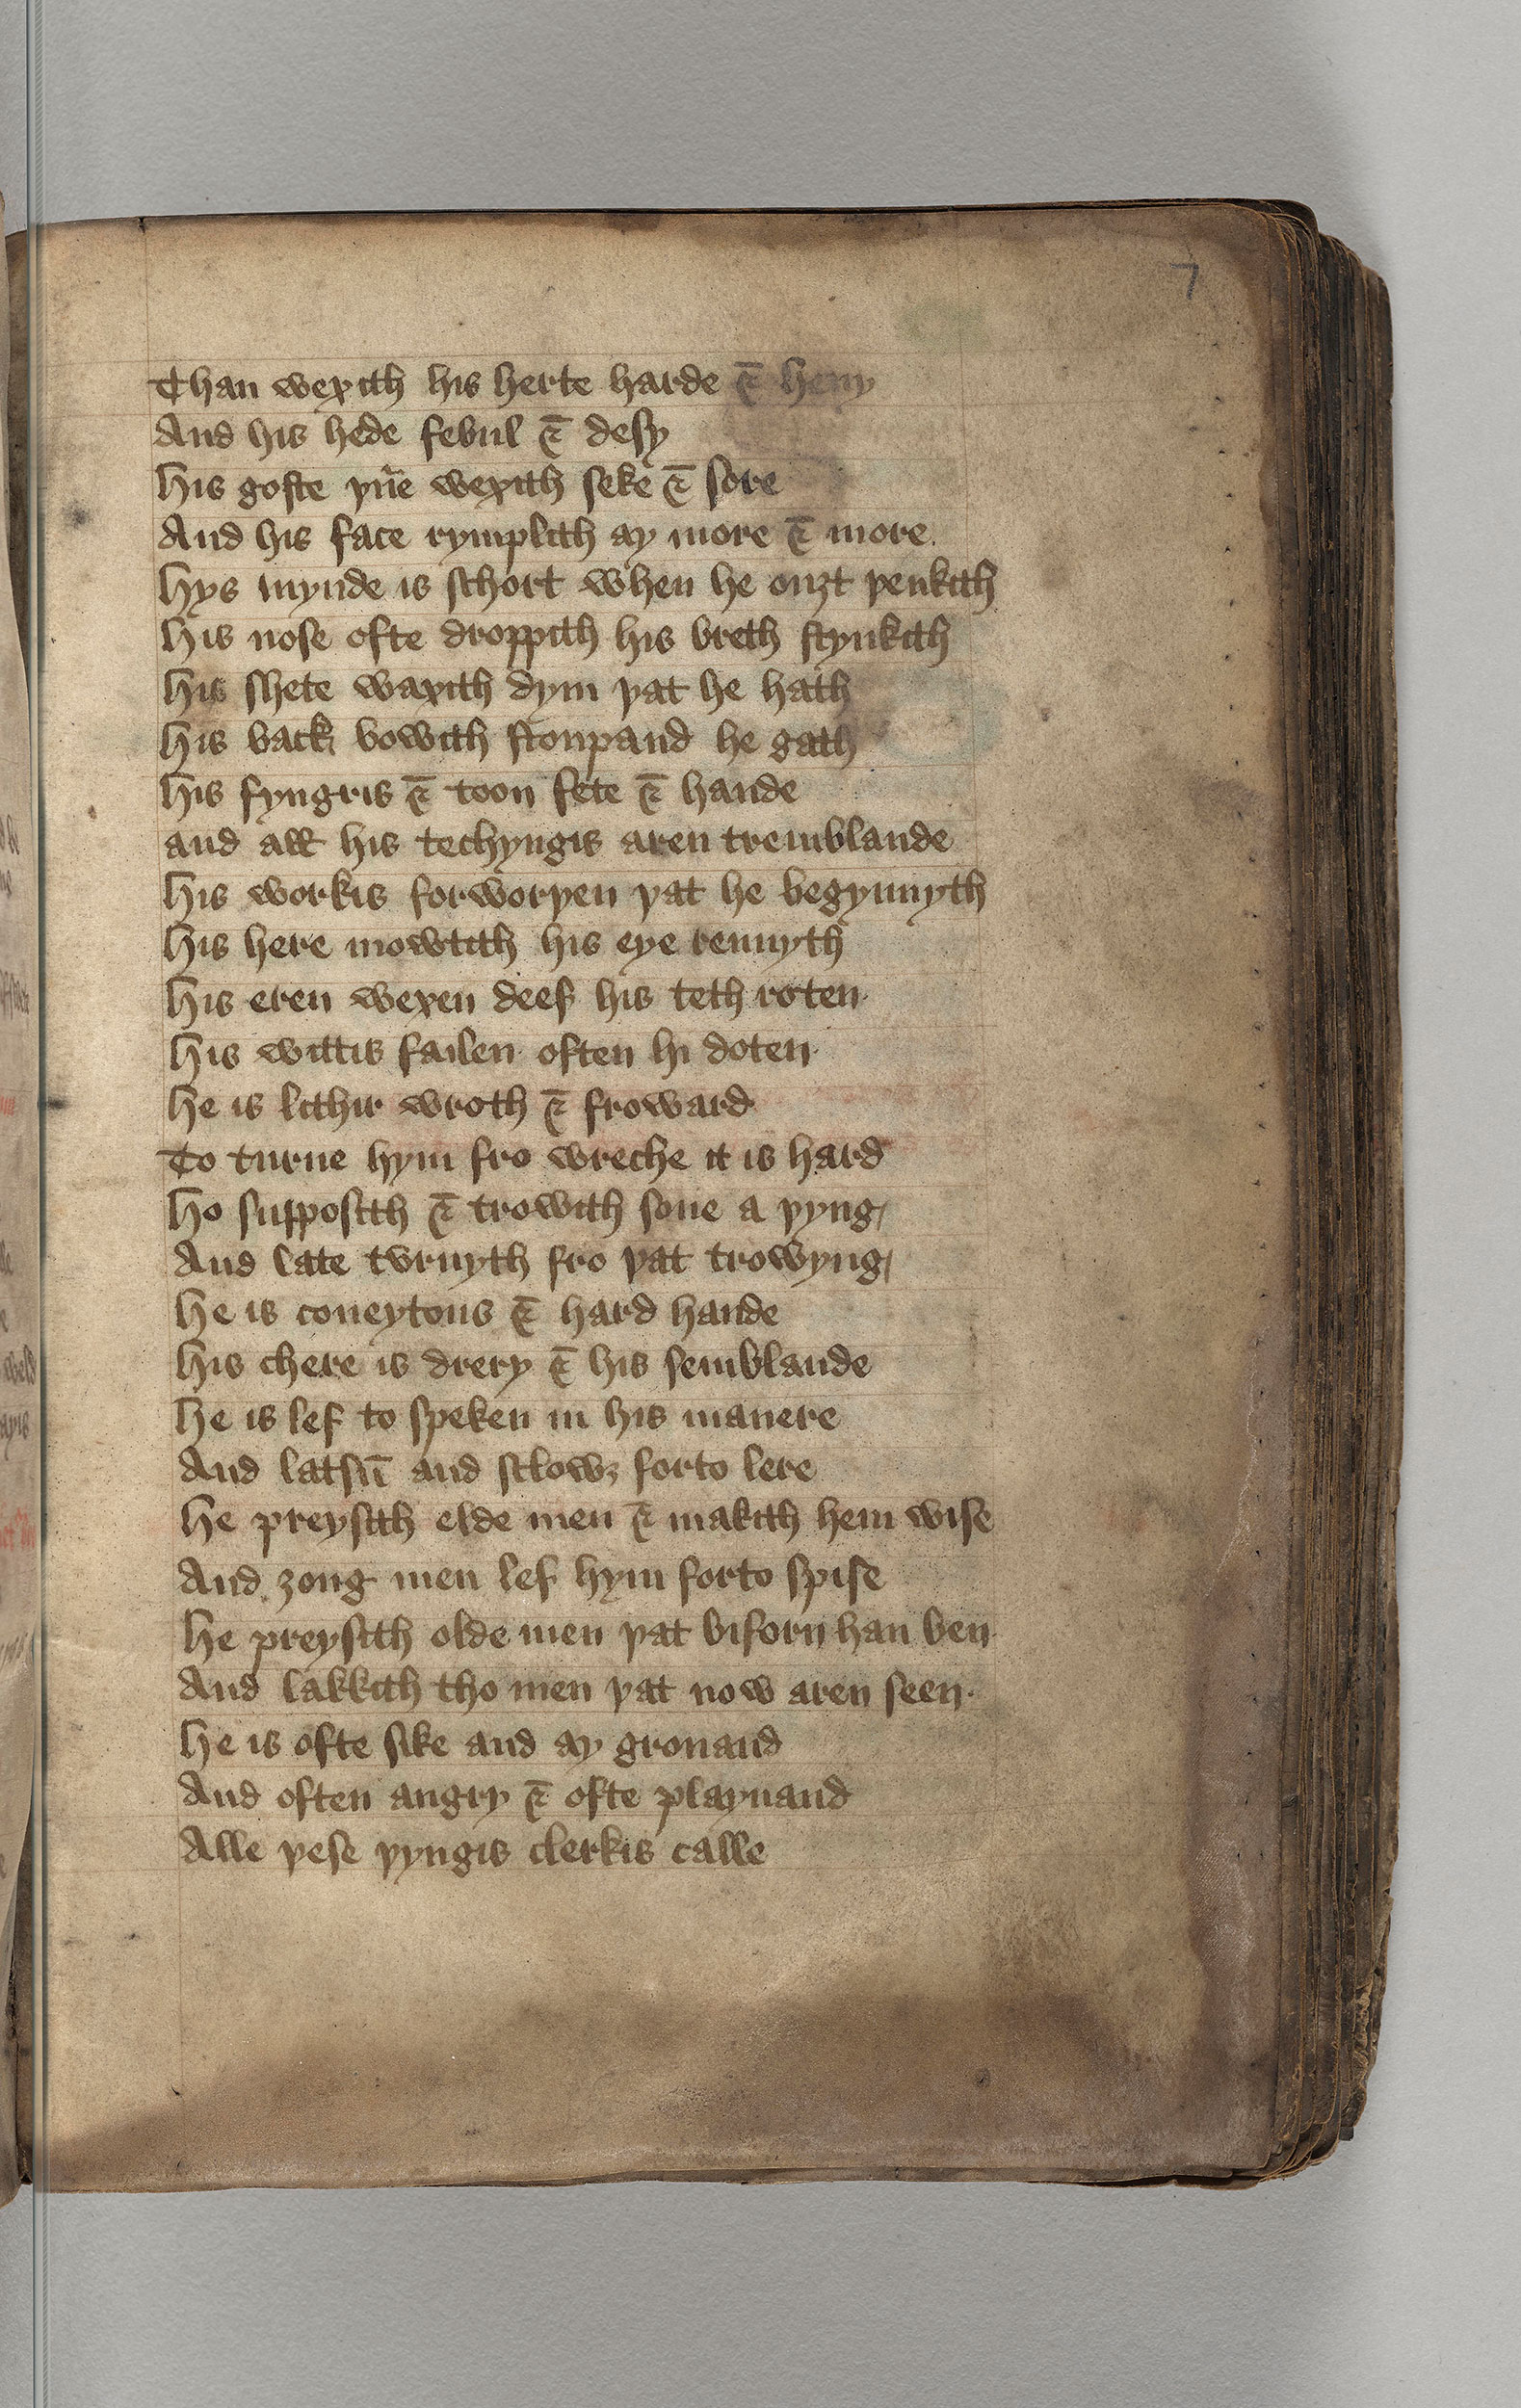 7
Than wexith his herte harde & heuy
And his hede febul & desy
His goste þne wexith seke & sore
And his face rymplith ay more & more.
Hys mynde is schort when he ouȝt þenkith
His nose ofte droppith his breth stynkith
His shete waxith dym þat he hath
His back bowith stoupand he gath
His fyngris & toon fete & hande
and all his techyngis aren tremblande
His workis forworþen þat he begynnyth
His here mowtith his eye rennyth
His eren wexen deef his teth roten.
His wittis failen often hi doten.
He is lithir wroth & froward
To turne hym fro wreche it is hard
Ho supposith & trowith sone a þyng
And late tvrnyth fro þat trowyng
He is coueytous & hard hande
His chere is drery & his semblande
He is lef to speken in his manere
And latsū and sclowȝ forto lere
He preysith elde men & makith hem wise
And ȝong men lef hym forto spise
He preysith olde men þat biforn han ben.
And lakkith tho men þat now aren seen.
He is ofte sike and ay gronand
And often angry & ofte playnand
Alle þese þyngis clerkis calle